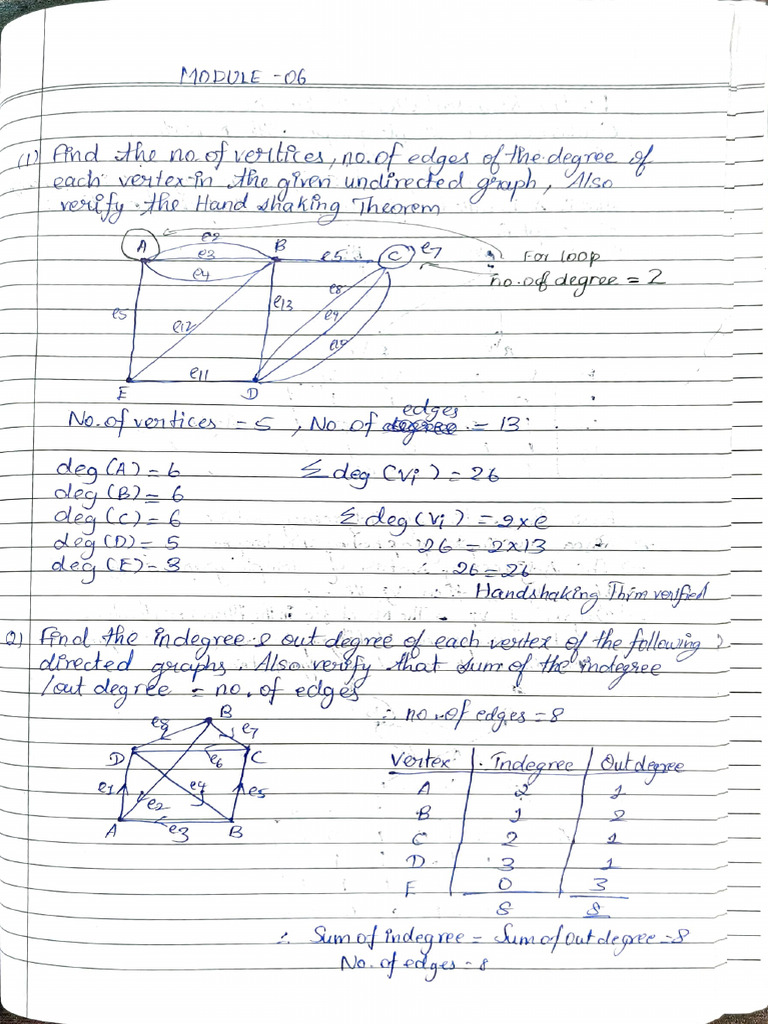 MODULE -06
(1) Find the no. of vertices, no. of edges of the degree of
each vertex in the given undirected graph, Also
verify the Hand shaking Theorem
A e2 e3 e4 B e5 C e7
For loop
no. of degree = 2
e5 e12 e13 e8 e9 e10
E e11 D
No. of vertices = 5, No. of edges = 13
deg(A) = 6 Σ deg (Vi) = 26
deg(B) = 6
deg(C) = 6 Σ deg(Vi) = 2xe
deg(D) = 5 26 = 2x13
deg(E) - 3 26 = 26
∴ Handshaking Thrm verified
2) Find the indegree & out degree of each vertex of the following
directed graphs. Also verify that sum of the indegree
/out degree = no. of edges
∴ no. of edges = 8
B
e8 e7
D e6 C
e1 e2 e4 e5
A e3 B
Vertex Indegree Out degree
A 2 1
B 1 2
C 2 1
D 3 1
E 0 3
8 8
∴ Sum of indegree = Sum of out degree = 8
No. of edges = 8